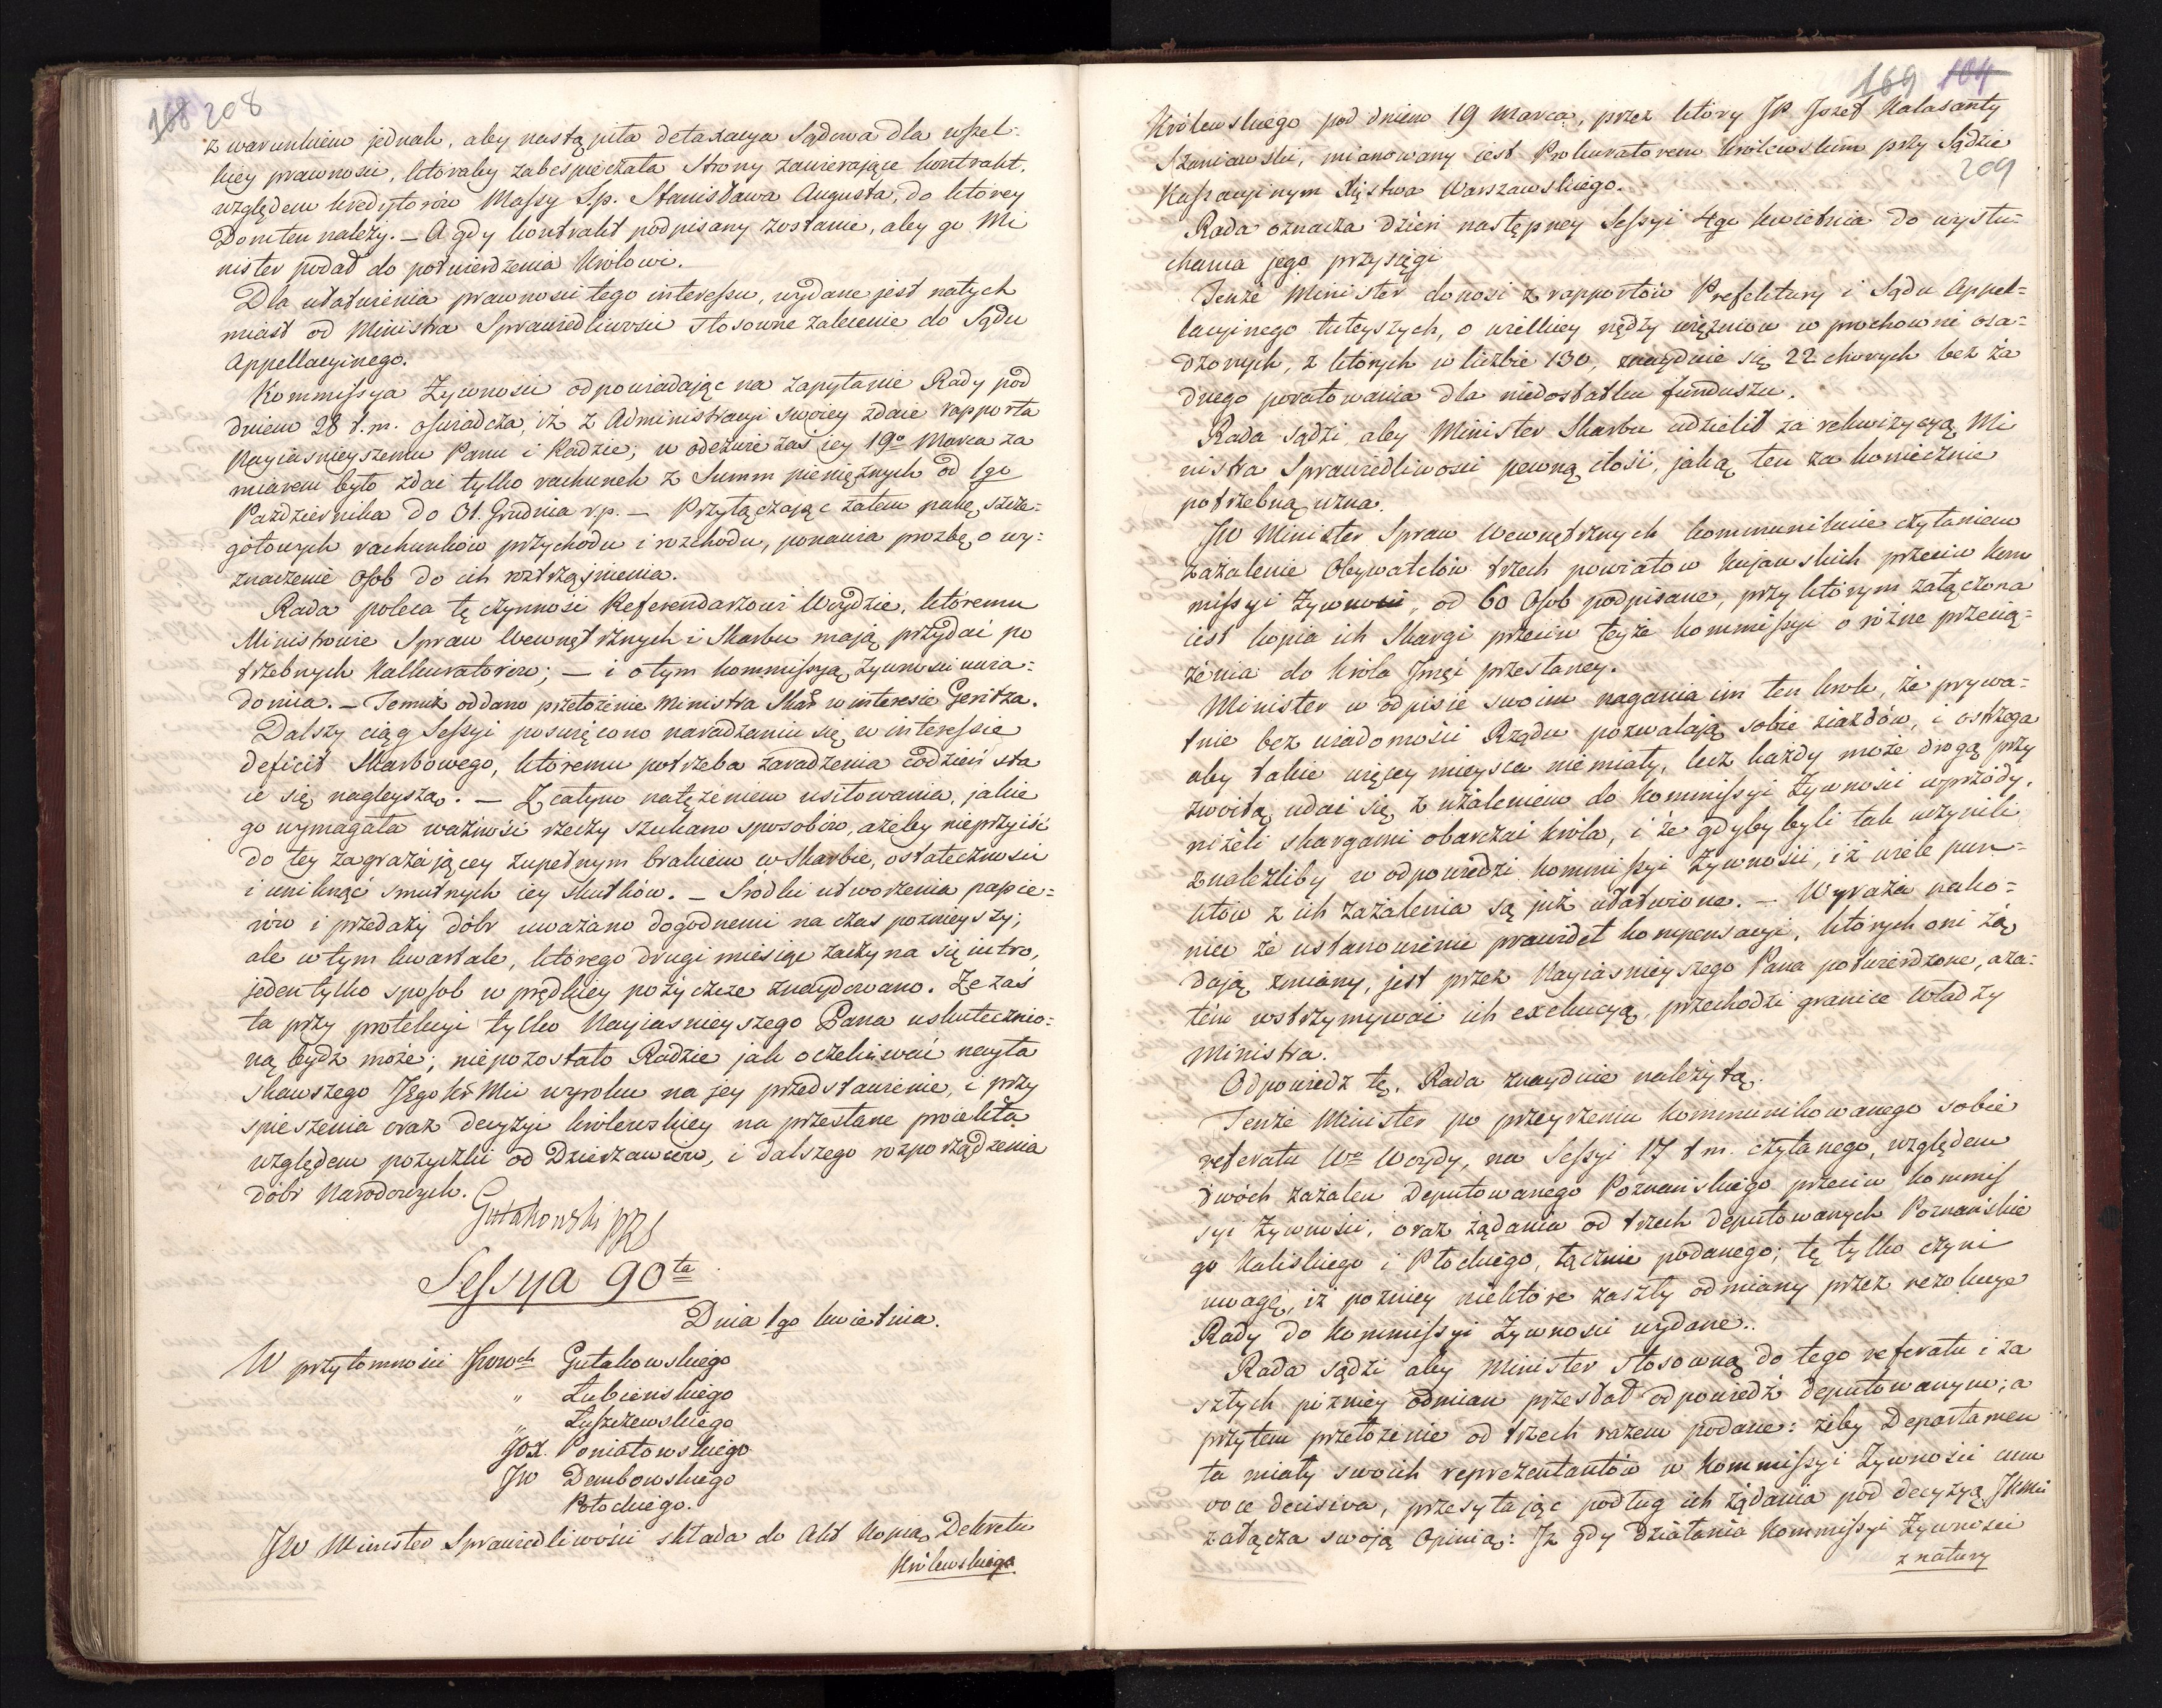 168 208
z warunkiem jednak, aby nastąpiła detaxacya Sądowa dla wszel=
kiey prawności, któraby zabespieczała Strony zawierające kontrakt,
względem kredytorów Massy S.p. Stanisława Augusta, do którey
Dom ten należy. — A gdy kontrakt podpisany zostanie, aby go Mi
nister podał do potwierdzenia Królowi.
Dla ułatwienia prawności tego interessu, wydane jest natych
miast od Ministra Sprawiedliwości stosowne zalecenie do Sądu
Appellacyinego.
Kommissya Żywności odpowiadając na zapytanie Rady pod
dniem 28 t.m. oświadcza, iż z Administracyi swoiey zdaie rapporta
Nayiaśnieyszemu Panu i Radzie; w odezwie zaś iey 19º Marca za
miarem było zdać tylko rachunek z Summ pieniężnych od 1go
Października do 31. Grudnia r.p. — Przyłączając zatem pakę szcze=
gółowych rachunków przychodu i rozchodu, ponawia prozbę o wy=
znaczenie Osob do ich roztrząśnienia.
Rada poleca tę czynność Referendarzowi Woydzie, któremu
Ministrowie Spraw Wewnętrznych i Skarbu mają przydać po
trzebnych Kalkuratorów; — i o tym kommissyą Żywności uwia=
domia. — Temuż oddano przełożenie Ministra Skar. w interesie Geritza.
Dalszy ciąg Sessyi poswięcono naradzaniu się w interessie
deficit Skarbowego, któremu potrzeba zaradzenia codzień sta
ie się nagleyszą. — Z całym natężeniem usiłowania, jakie
go wymagała ważność rzeczy szukano sposobów, ażeby nieprzyiść
do tey zagrażającey zupełnym brakiem w Skarbie, ostateczności
i uniknąć smutnych iey skutków. — Środki utworzenia papie=
rów i przedaży dóbr uważano dogodnemi na czas poznieyszy;
ale w tym kwartale, którego drugi miesiąc zaczyna się iutro,
jeden tylko sposob w prędkiey pożyczce znaydowano. Że zaś
ta przy protekcyi tylko Nayiaśnieyszego Pana uskutecznio=
ną bydź może; niepozostało Radzie jak oczekiwać nayła
skawszego JEgo Kr Mci wyroku na jey przedstawienie, i przy
spieszenia oraz decyzyi królewskiey na przesłane proiekta
względem pożyczki od Dzierżawców, i dalszego rozporządzenia
dóbr Narodowych.
Gutakowski
Sessya 90ta
Dnia 1go kwietnia.
W przytomności JWWch Gutakowskiego
" Łubieńskiego
" Łuszczewskiego
JOX. Poniatowskiego
JW Dembowskiego
Potockiego.
JW Minister Sprawiedliwości składa do Akt Kopią Dekretu
Królewskiego
169 104
209
Królewskiego pod dniem 19 Marca, przez który JP Jozef Kalasanty
Szaniawski, mianowany jest Prokuratorem królewskim przy Sądzie
Kassacyinym Xięstwa Warszawskiego.
Rada oznacza dzień następney Sessyi 4go kwietnia do wysłu=
chania jego przysięgi
Tenże Minister donosi z rapportów Prefektury i Sądu Appel=
lacyinego tuteyszych, o wielkiey nędzy więzniów w prochowni osa=
dzonych, z których w liczbie 130, znayduie się 22 chorych bez ża
dnego poratowania dla niedostatku funduszu.
Rada sądzi, aby Minister Skarbu udzielił za rekwizycyą Mi
nistra Sprawiedliwości pewną ilość, jaką ten za koniecznie
potrzebną uzna.
JW Minister Spraw Wewnętrznych kommunikuie czytaniem
zażalenie Obywatelów trzech powiatów Kujawskich przeciw kom
missyi Żywności, od 60 Osob podpisane, przy którym załączona
iest kopia ich Skargi przeciw teyże kommissyi o różne przecią=
żenia do króla Jmci przesłaney.
Minister w odpisie swoim nagania im ten krok, że prywa=
tnie bez wiadomości Rządu pozwalają sobie ziazdów, i ostrzega
aby takie więcey mieysca niemiały, lecz każdy może drogą przy
zwoitą udać się z użaleniem do kommissyi Żywności wprzódy,
niżeli skargami obarczać króla, i że gdyby byli tak uczynili
znaleźliby w odpowiedzi kommissyi Żywności, iż wiele pun=
któw z ich zażalenia są już ułatwione. — Wyraża nako=
niec że ustanowienie prawideł kompensacyi, których oni żą
dają zmiany, jest przez Nayiaśnieyszego Pana potwierdzone, a za=
tém wstrzymywać ich exekucyą, przechodzi granice władzy
Ministra.
Odpowiedz tę, Rada znayduie należytą.
Tenże Minister po przeyrzeniu kommunikowanego sobie
referatu Wo Woydy, na Sessyi 17 t m. czytanego, względem
dwóch zażaleń Deputowanego Poznańskiego przeciw kommis
syi Żywności, oraz żądania od trzech deputowanych Poznańskie
go Kaliskiego i Płockiego, łącznie podanego; tę tylko czyni
uwagę, iż pozniey niektóre zaszły odmiany przez rezolucye
Rady do kommissyi Żywności wydane.
Rada sądzi aby Minister stosowną do tego referatu i za
szłych pizniey odmian przesłał odpowiedź deputowanym; a
przytem przełożenie od trzech razem podane: żeby Departamen
ta miały swoich reprezentantów w Kommissyi Żywności cum
voce decisiva, przesyłając podług ich żądania pod decyzyą JKMci
załącza swoją Opinią: Iż gdy działania Kommissyi Żywności
z natury